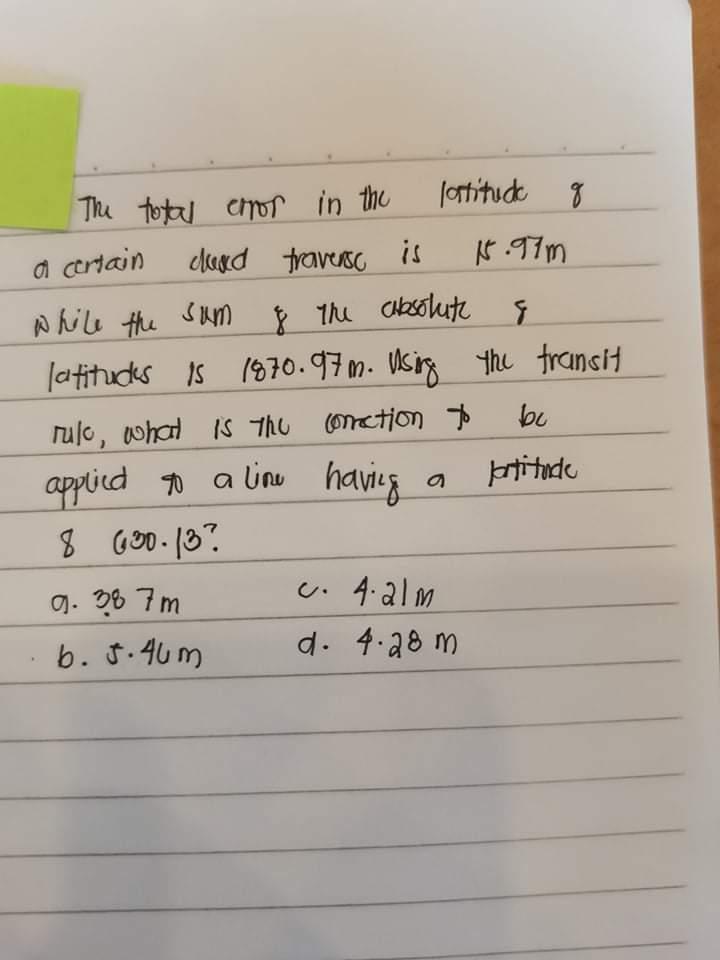 The total error in the latitude of
a certain closed traverse is 15.97m
while the sum of the absolute of
latitudes is 1870.97m. Using the transit
rule, what is the correction to be
applied to a line having a latitude
of 630.13?
a. 3.87m c. 4.21m
b. 5.46m d. 4.28 m